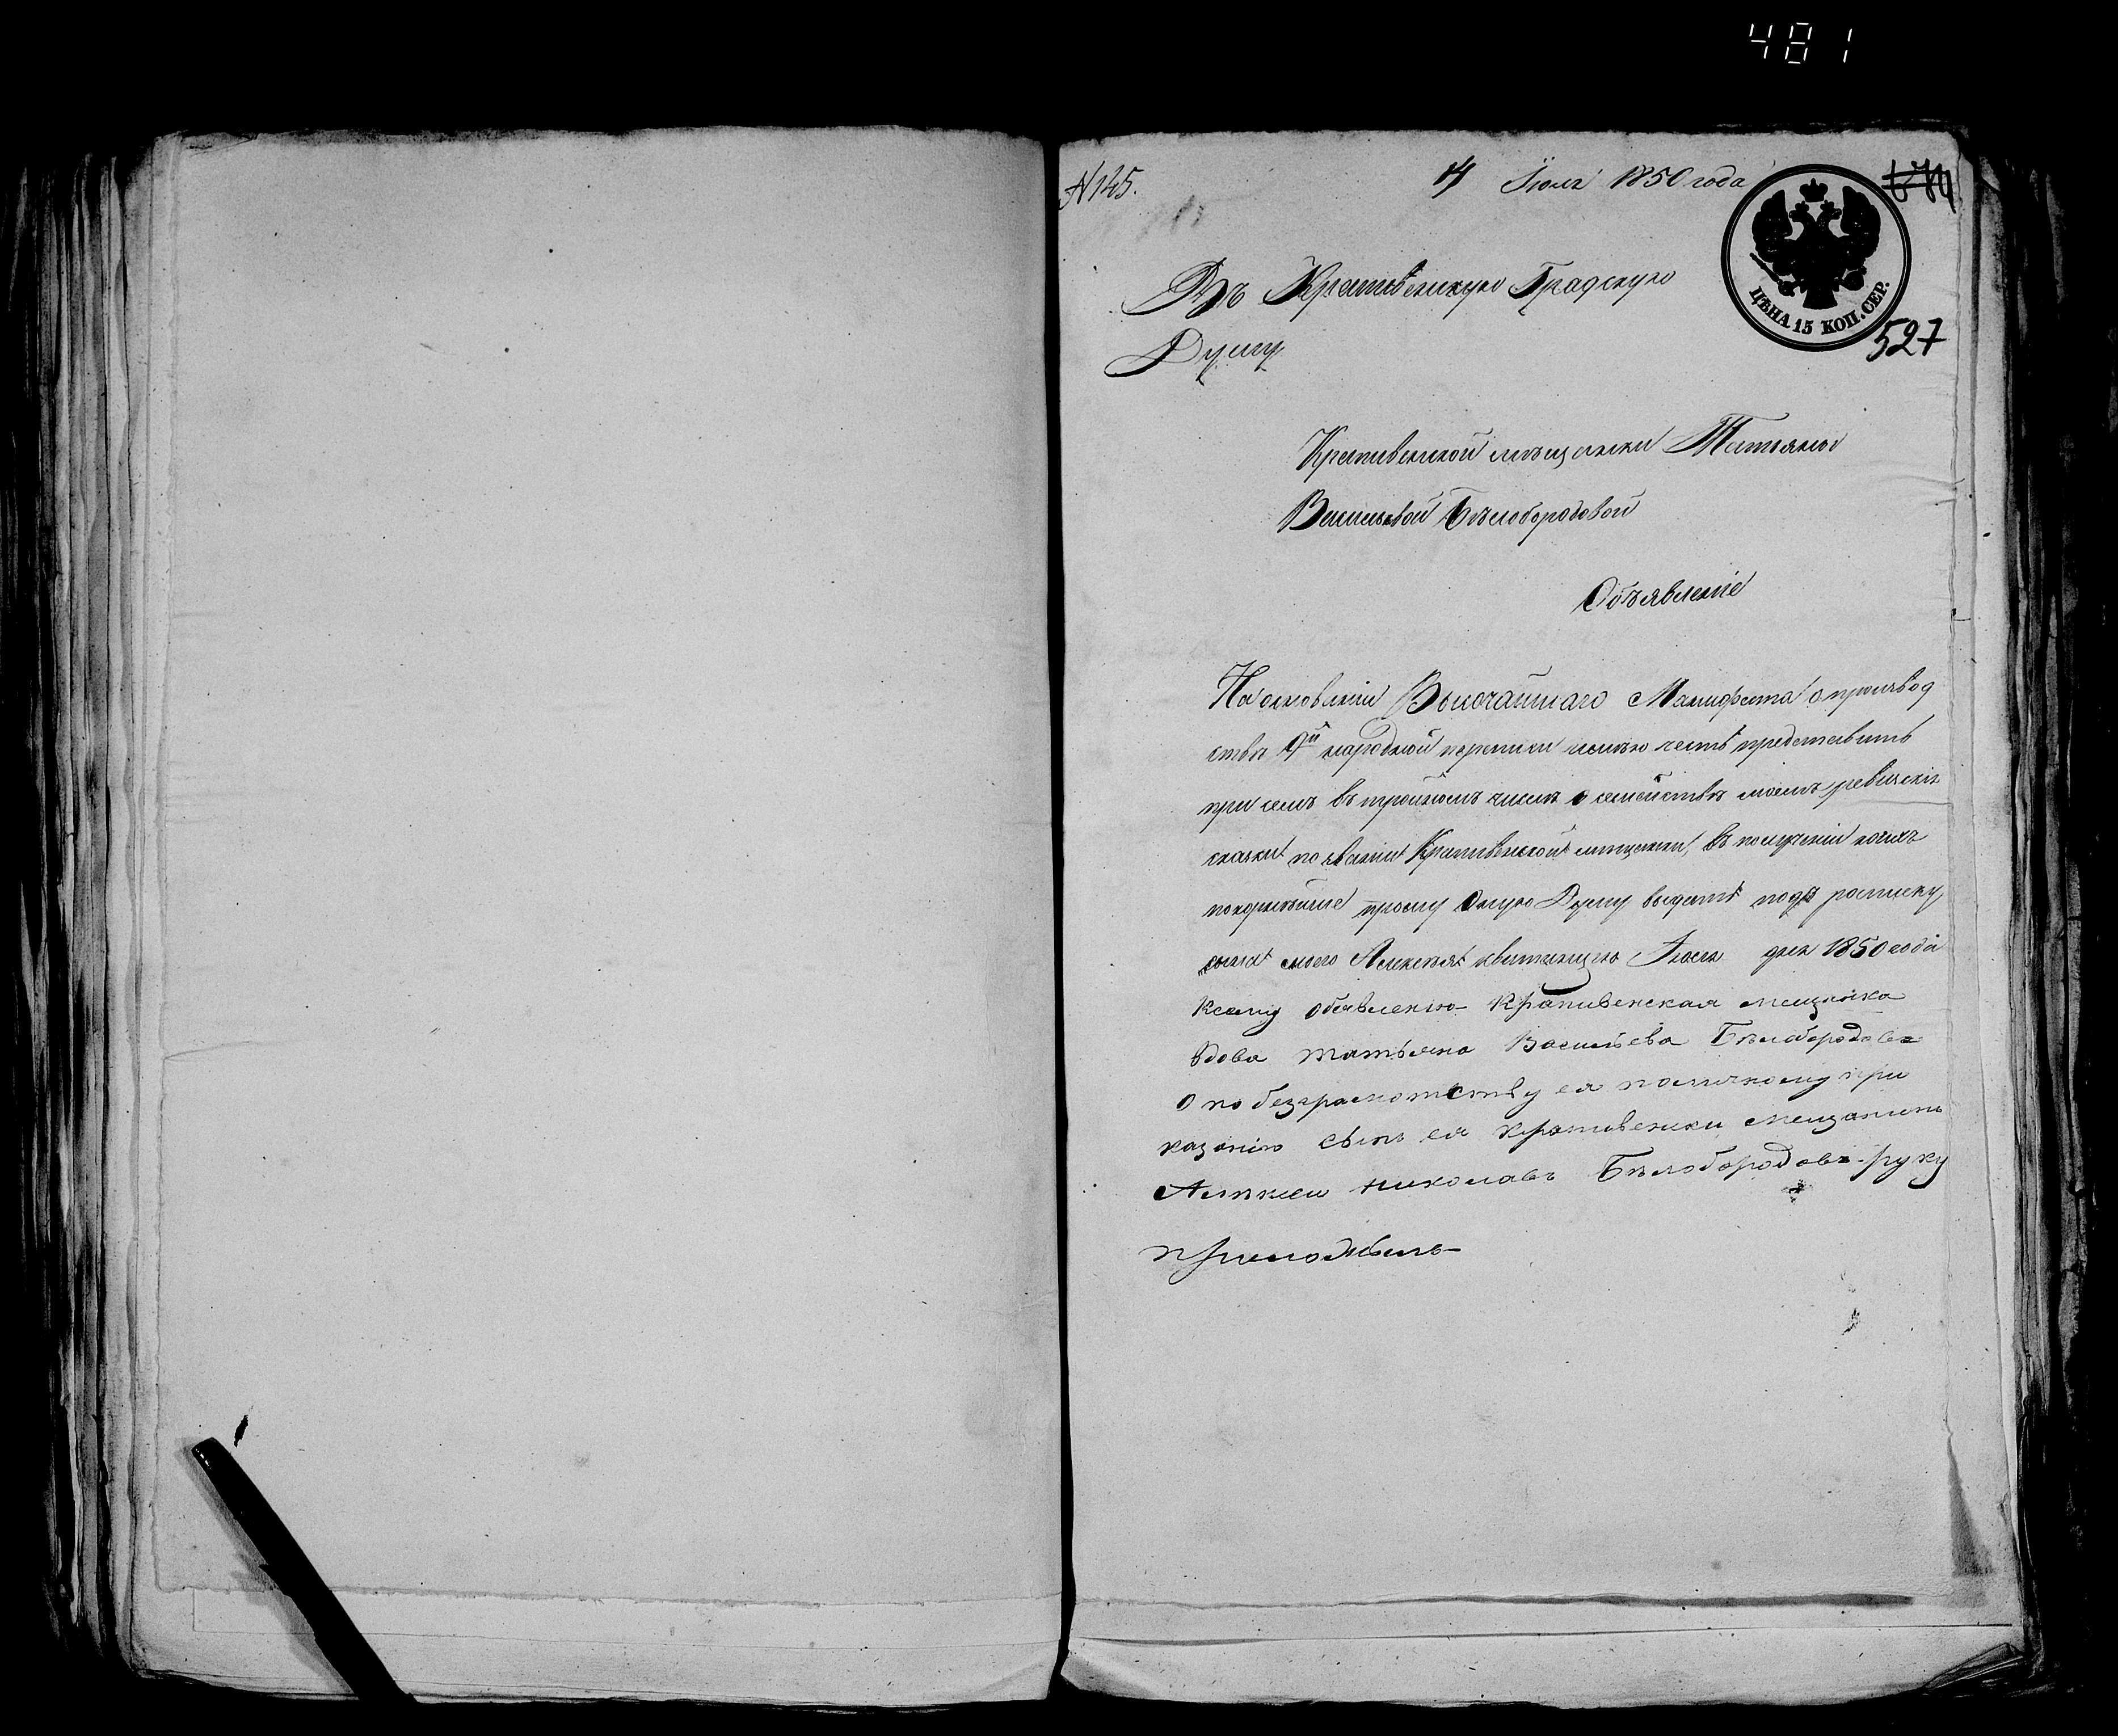 481
N 145.
14 Іюля 1850 года
ЦѢНА 15 КОП. СЕР.
527
Въ Крапивенскую Градскую
Думу
Крапивенской мѣщанки Татьяны
Васильевой Бѣлобородовой
Объявленіе
На основаніи Высочайшаго Манифеста о производ
ствѣ 9й народной переписи имѣю честь представить
при семъ въ тройномъ числѣ о семействѣ моемъ ревискія
сказки по званію Крапивенской мещанки, въ полученіи коихъ
покорнѣйше прошу Оную Думу выдать подъ росписку
сына моего Алексея квитанцую Іюля дня 1850 года
Ксему обявленію Крапивенская мещанка
вдова татьяна Васильева Бѣлобородова
о по безграмотству ея поличному при
казанію сынъ ея крапивенски мещанинъ
Алѣксеи николавъ Бѣлобородовъ руку
приложилъ